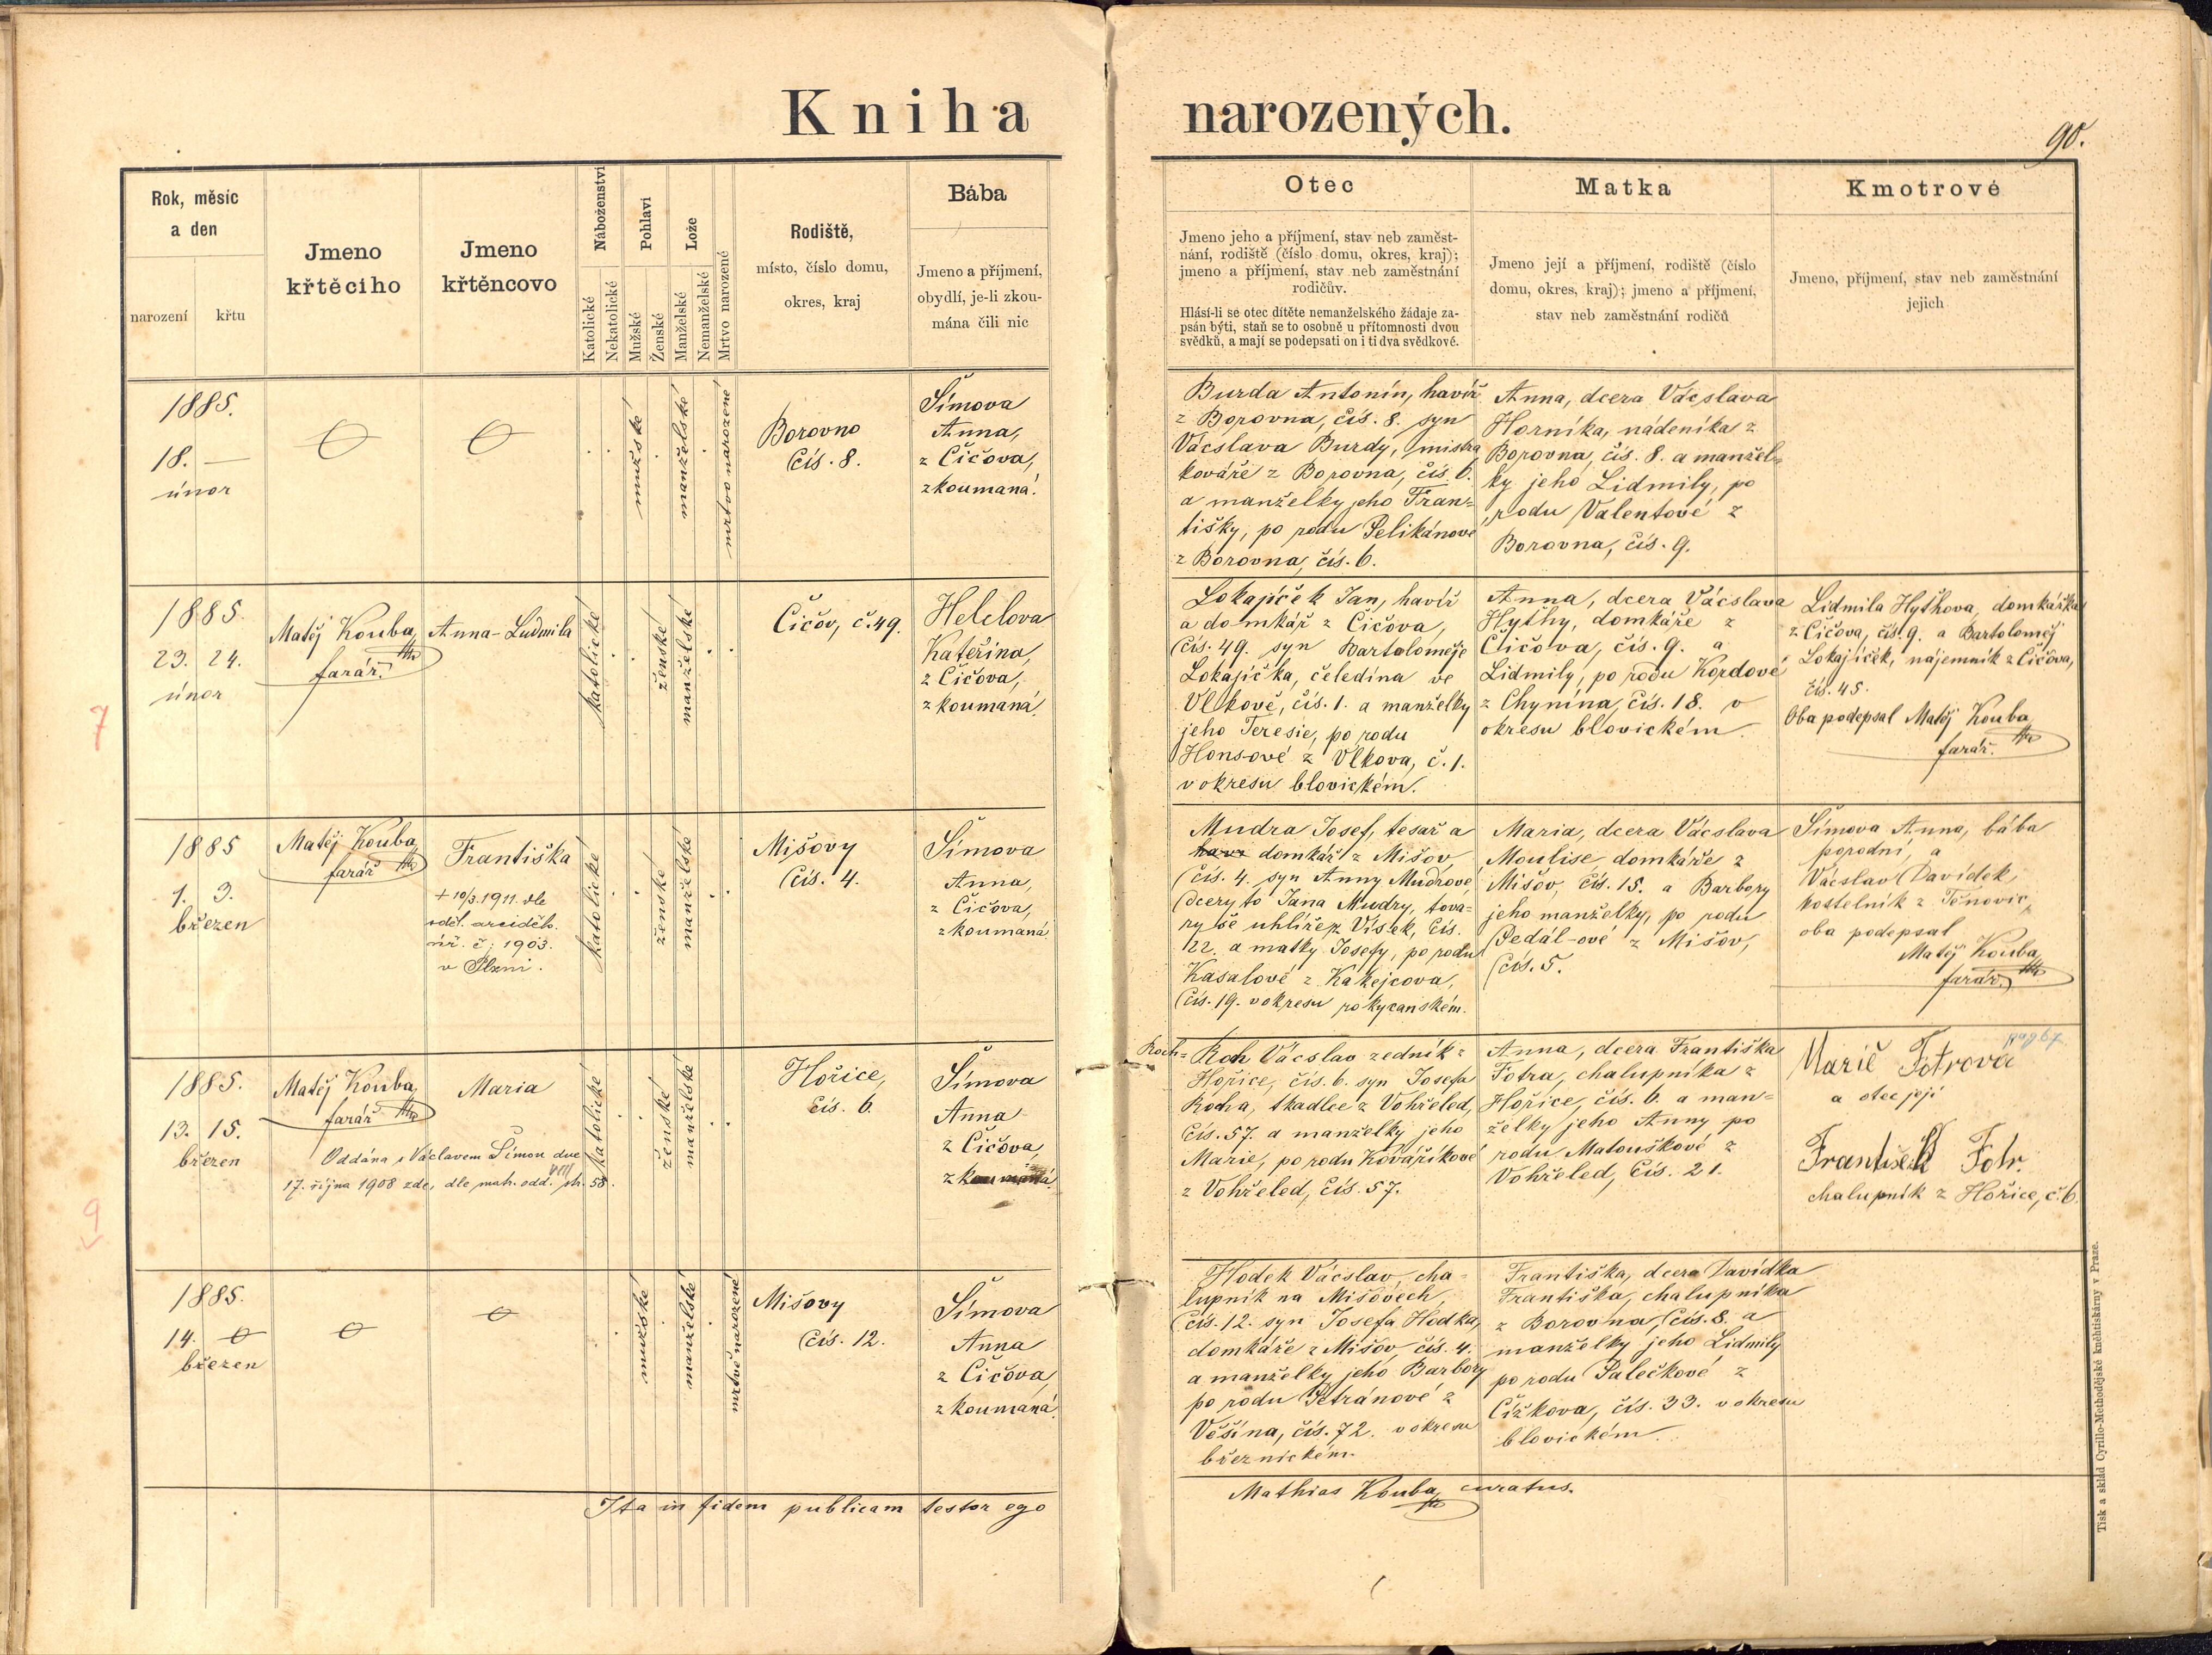 Kniha narozených.
90.
Rok, měsíc
a den
narození
křtu
Jmeno
křtěcího
Jmeno
křtěncovo
Náboženství
Katolické
Nekatolické
Pohlaví
Mužské
Ženské
Lože
Manželské
Nemanželské
Mrtvo narozené
Rodiště,
místo, číslo domu,
okres, kraj
Bába
Jmeno a příjmení,
obydlí, je-li zkou-
mána čili nic
Otec
Jmeno jeho a příjmení, stav neb zaměst-
nání, rodiště (číslo domu, okres, kraj);
jmeno a příjmení, stav neb zaměstnání
rodičův.
Hlásí-li se otec dítěte nemanželského žádaje za-
psán býti, staň se to osobně u přítomnosti dvou
svědků, a mají se podepsati on i ti dva svědkové.
Matka
Jmeno její a příjmení, rodiště (číslo
domu, okres, kraj); jmeno a příjmení,
stav neb zaměstnání rodičů
Kmotrové
Jmeno, příjmení, stav neb zaměstnání
jejich
1885.
18. —
únor
mužské
manželské
mrtvo narozené
Borovno
čís. 8.
Šímova
Anna,
z Čičova,
zkoumaná.
Burda Antonín, havíř
z Borovna, čís. 8. syn
Vácslava Burdy, mistra
kováře z Borovna, čís. 6.
a manželky jeho Fran=
tišky, po rodu Pelikánové
z Borovna, čís. 6.
Anna, dcera Vácslava
Horníka, nádeníka z
Borovna, čís. 8. a manžel=
ky jeho Lidmily, po
rodu Valentové z
Borovna, čís. 9.
1885.
23. 24.
únor
Matěj Kouba,
farář.
Anna-Ludmila
katolické
ženské
manželské
Čičov, č. 49.
Helclova
Kateřina,
z Čičova,
zkoumaná.
Lokajíček Jan, havíř
a domkář z Čičova,
čís. 49. syn Bartoloměje
Lokajíčka, čeledína ve
Vlkově, čís. 1. a manželky
jeho Teresie, po rodu
Honsové z Vlkova, č. 1.
v okresu blovickém.
Anna, dcera Vácslava
Hyťhy, domkáře z
Čičova, čís. 9. a
Lidmily, po rodu Kordové
z Chynína, čís. 18. v
okresu blovickém.
Lidmila Hyťhova, domkářka
z Čičova, čís. 9. a Bartoloměj
Lokajíček, nájemník z Čičova,
čís. 45.
Oba podepsal Matěj Kouba,
farář.
7
1885
1. 3.
březen
Matěj Kouba,
farář
Františka
+ 10/3. 1911. dle
sděl. arciděk.
úř. č. 1903.
v Plzni.
katolické
ženské
manželské
Mišovy
čís. 4.
Šímova
Anna,
z Čičova,
zkoumaná.
Mudra Josef, tesař a
domkář z Mišov,
čís. 4. syn Anny Mudrové
dcery to Jana Mudry, tova=
ryše uhlířsk. Vísek, čís.
22. a matky Josefy, po rodu
Kasalové z Kakejcova,
čís. 19. v okresu rokycanském.
Maria, dcera Vácslava
Moulise, domkáře z
Mišov, čís. 15. a Barbory
jeho manželky, po rodu
Pedál-ové z Mišov,
čís. 5.
Šímova Anna, bába
porodní, a
Vácslav Davídek,
kostelník z Těnovic,
oba podepsal
Matěj Kouba,
farář.
1885.
13. 15.
březen
Matěj Kouba,
farář
Maria
Oddána s Václavem Šimou dne
17. října 1908 zde, dle matr. odd. VIII str. 58.
katolické
ženské
manželské
Hořice,
čís. 6.
Šímova
Anna
z Čičova,
zkoumaná.
Roch=
Roh Vácslav zedník z
Hořice, čís. 6. syn Josefa
Rocha, tkadlce z Vohřeled,
čís. 57. a manželky jeho
Marie, po rodu Kovaříkové
z Vohřeled, čís. 57.
Anna, dcera Františka
Fotra, chalupníka z
Hořice, čís. 6. a man=
želky jeho Anny po
rodu Matouškové z
Vohřeled, čís. 21.
Marie Fotrova
a otec její
František Fotr.
chalupník z Hořice, č. 6.
9
1885.
14.
březen
mužské
manželské
mrtvě narozené
Mišovy
čís. 12.
Šímova
Anna
z Čičova,
zkoumaná.
Hodek Vácslav, cha=
lupník na Mišovech,
čís. 12. syn Josefa Hodka,
domkáře z Mišov, čís. 4.
a manželky jeho Barbory
po rodu Petránové z
Věšína, čís. 72. v okresu
březnickém.
Františka, dcera Davídka
Františka, chalupníka
z Borovna, čís. 8. a
manželky jeho Lidmily
po rodu Palečkové z
Čížkova, čís. 33. v okresu
blovickém.
Ita in fidem publicam testor ego
Mathias Kouba, curatus.
Tisk a sklad Cyrillo-Methodějské knihtiskárny v Praze.